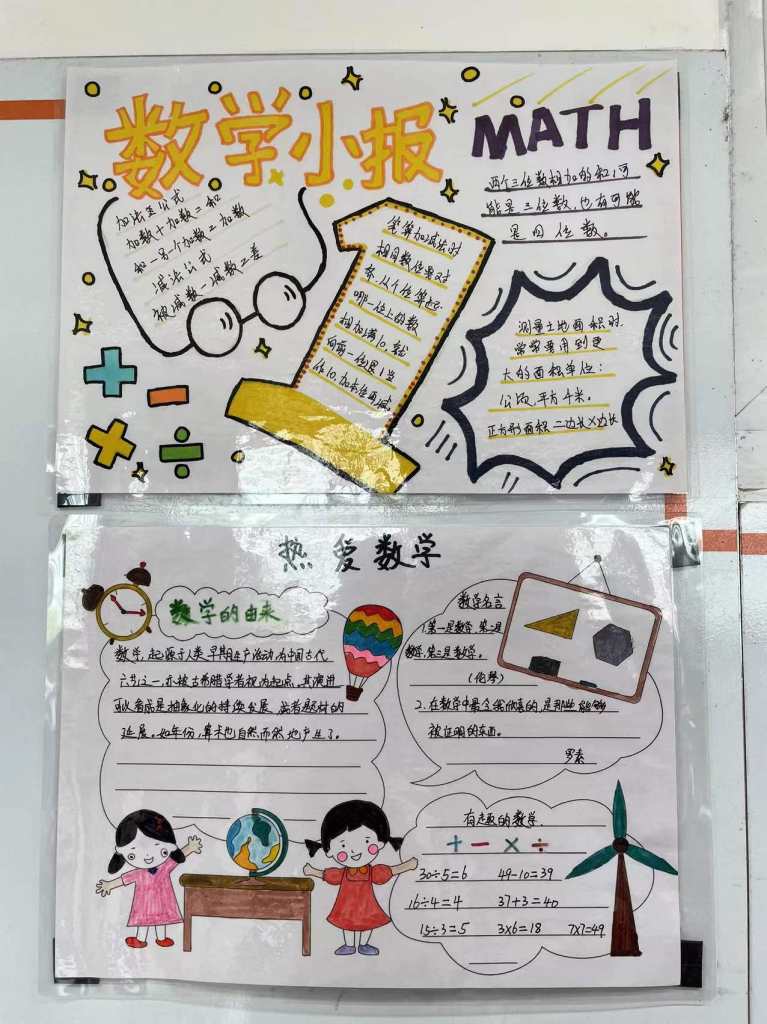 数学小报
MATH
两个三位数相加的和,可
能是三位数,也有可能
是四位数。
加法至公式
加数+加数=和
和-另个加数=加数
减法公式
被减数-减数=差
1
笔算加减法时
相同数位要对
齐.从个位算起.
哪一位上的数
相加满10.就
向前一位进1当
作10加本位再减
测量土地面积时.
常常要用到更
大的面积单位:
公顷,平方千米。
正方形面积=边长×边长
+
-
×
÷
热爱数学
数学的由来
数学,起源于人类早期生产活动,为中国古代
六艺之一,亦被古希腊学者视为起点,其演进
可以看成是抽象化的持续发展.或者题材的
延展。如年份,算术也自然而然地产生了。
数学名言
1.第一是数学,第二是
数学,第三是数学。
(伦琴)
2.在数学中最令我欣喜的,是那些能够
被证明的东西。
罗素
有趣的数学
+ - × ÷
30÷5=6 49-10=39
16÷4=4 37+3=40
15÷3=5 3×6=18 7×7=49